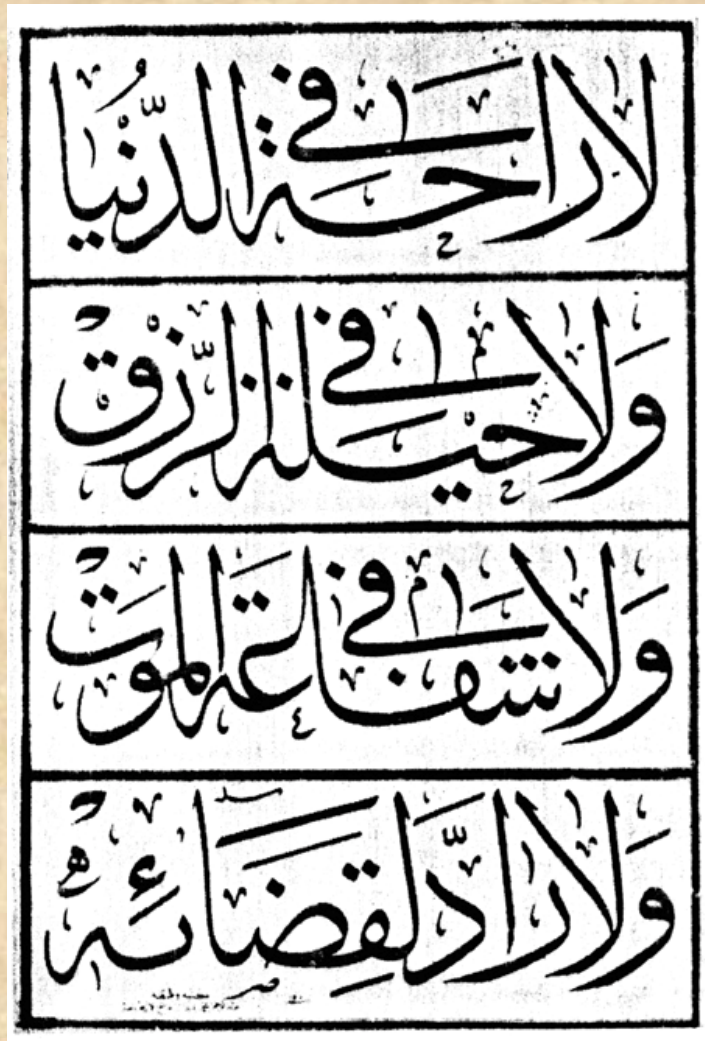 لا راحة في الدُّنْيا
وَلا حيلة في الرِّزْق
وَلا شفاعة في الموت
وَلا رادَّ لقِضَائِه